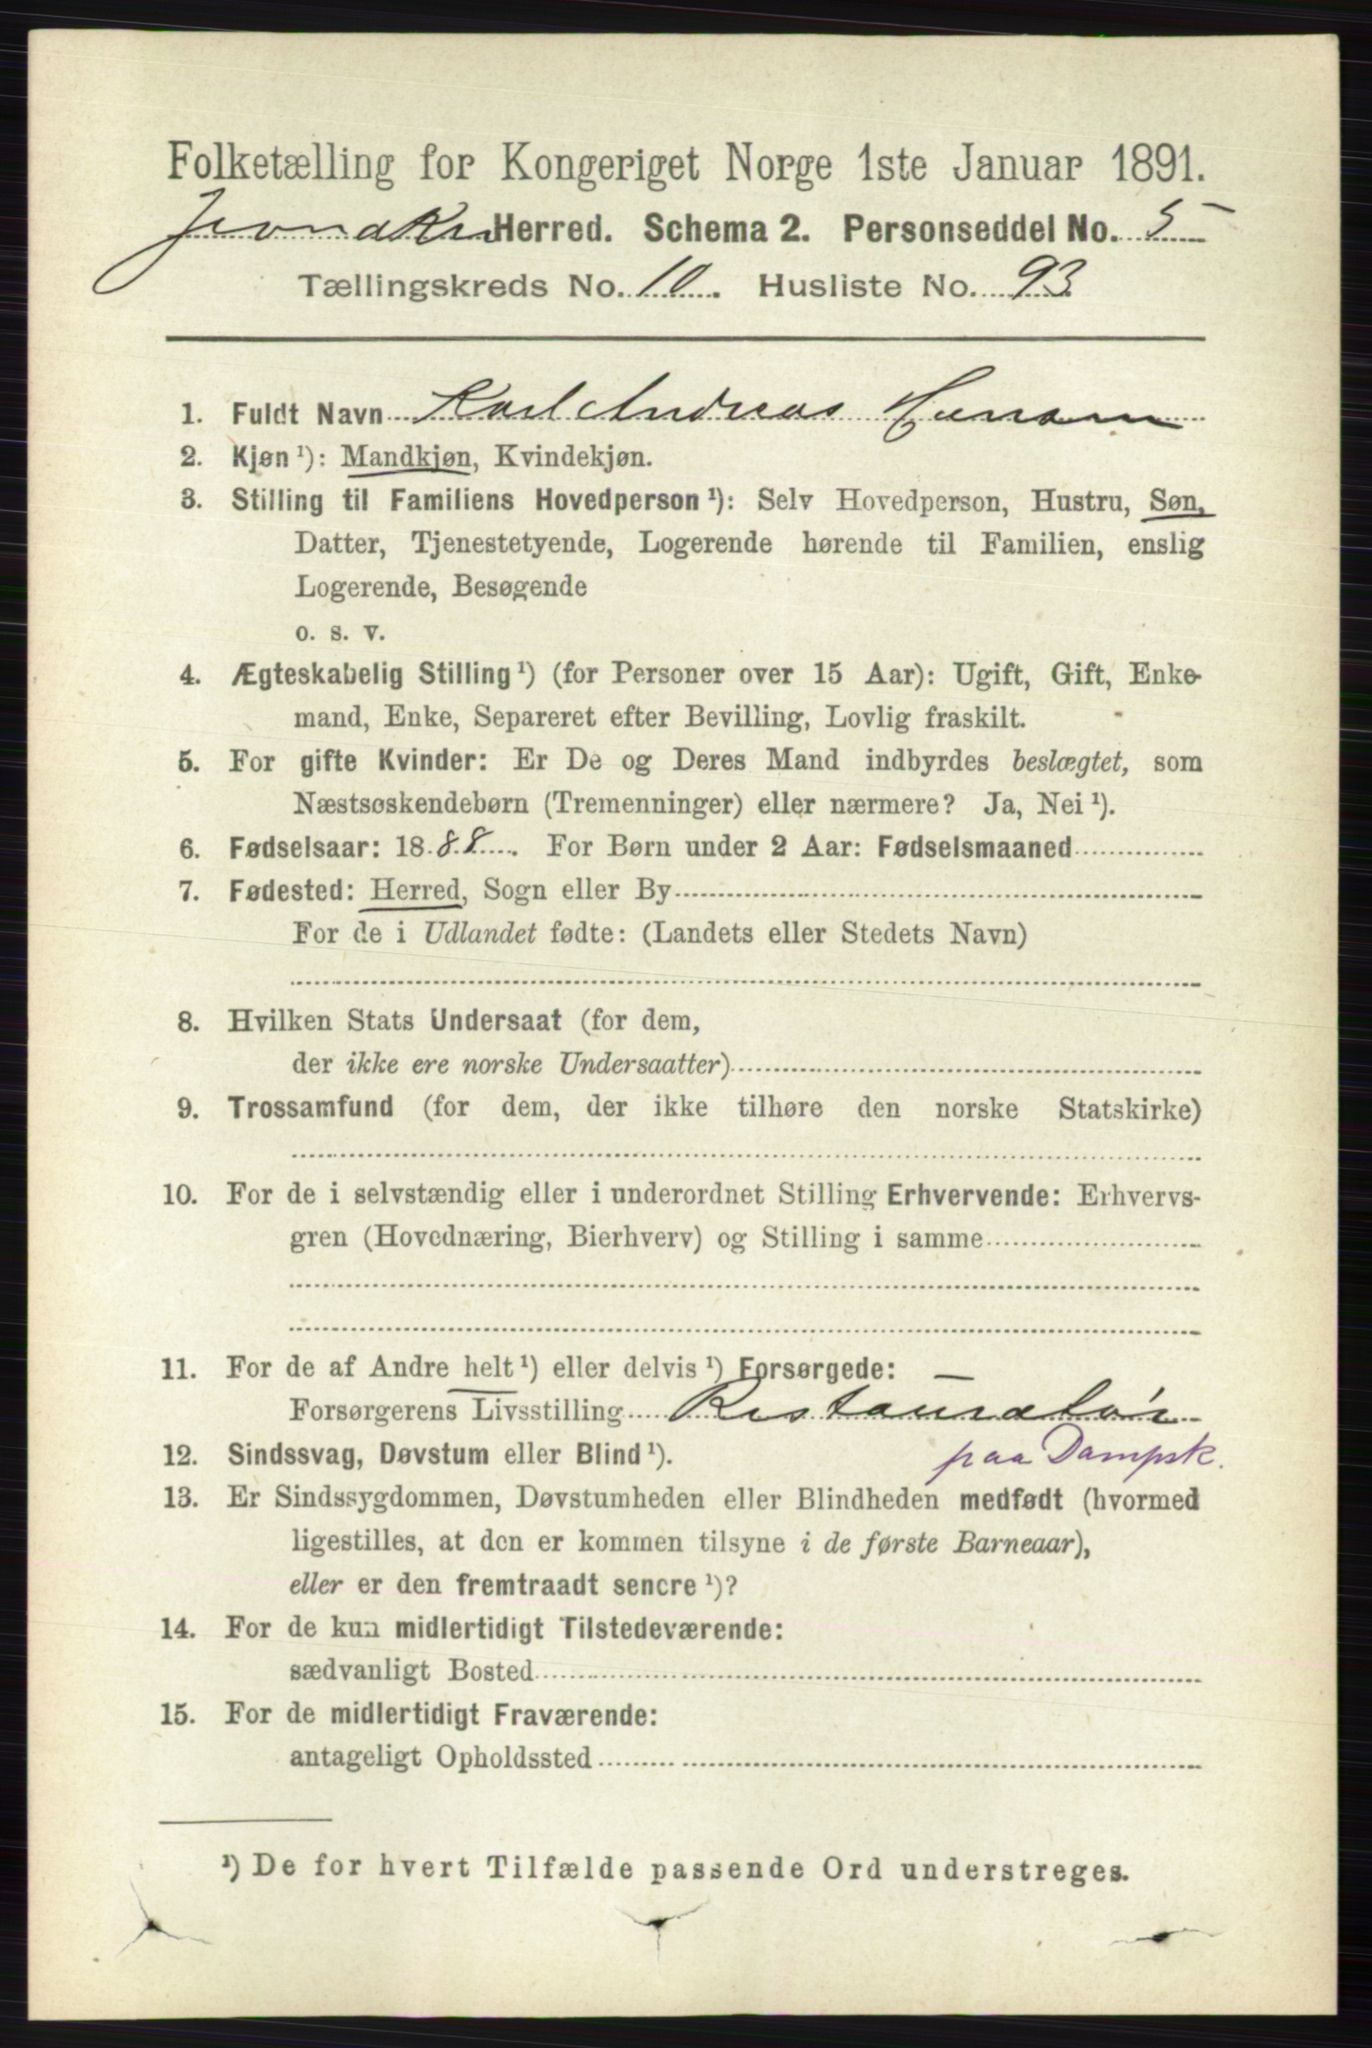 Folketælling for Kongeriget Norge 1ste Januar 1891.
Jevnaker Herred. Schema 2. Personseddel No. 5
Tællingskreds No. 10. Husliste No. 93
1. Fuldt Navn Karl Andreas
2. Kjøn ¹): Mandkjøn, Kvindekjøn.
3. Stilling til Familiens Hovedperson ¹): Selv Hovedperson, Hustru, Søn,
Datter, Tjenestetyende, Logerende hørende til Familien, enslig
Logerende, Besøgende
o. s. v.
4. Ægteskabelig Stilling ¹) (for Personer over 15 Aar): Ugift, Gift, Enke-
mand, Enke, Separeret efter Bevilling, Lovlig fraskilt.
5. For gifte Kvinder: Er De og Deres Mand indbyrdes beslægtet, som
Næstsøskendebørn (Tremenninger) eller nærmere? Ja, Nei ¹).
6. Fødselsaar: 1888. For Børn under 2 Aar: Fødselsmaaned
7. Fødested: Herred, Sogn eller By
For de i Udlandet fødte: (Landets eller Stedets Navn)
8. Hvilken Stats Undersaat (for dem,
der ikke ere norske Undersaatter)
9. Trossamfund (for dem, der ikke tilhøre den norske Statskirke)
10. For de i selvstændig eller i underordnet Stilling Erhvervende: Erhvervs-
gren (Hovednæring, Bierhverv) og Stilling i samme
11. For de af Andre helt ¹) eller delvis ¹) Forsørgede:
Forsørgerens Livsstilling Restauratør
paa Dampsk.
12. Sindssvag, Døvstum eller Blind ¹).
13. Er Sindssygdommen, Døvstumheden eller Blindheden medfødt (hvormed
ligestilles, at den er kommen tilsyne i de første Barneaar),
eller er den fremtraadt senere ¹)?
14. For de kun midlertidigt Tilstedeværende:
sædvanligt Bosted
15. For de midlertidigt Fraværende:
antageligt Opholdssted
¹) De for hvert Tilfælde passende Ord understreges.